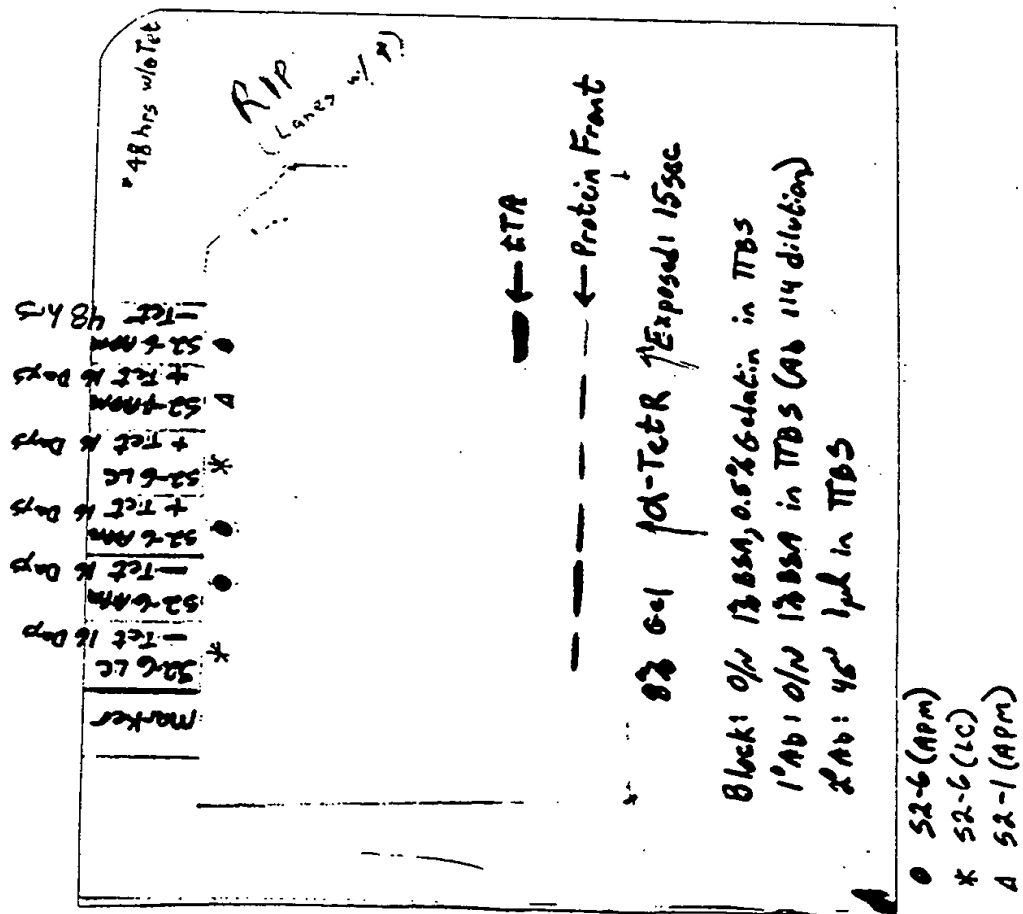 *48 hrs w/o Tet
RIP
(Lanes w/ *)
Marker
S2-6 LC
- Tet 16 Days
S2-6 APM
- Tet 16 Days
S2-6 APM
+ Tet 16 Days
S2-6 LC
+ Tet 16 Days
S2-1 APM
+ Tet 16 Days
S2-6 APM
- Tet 48 hrs
← tTA
← Protein Front
8% Gel α-TetR Exposed: 15sec
Block: O/N 1% BSA, 0.5% Gelatin in TTBS
1° Ab: O/N 1% BSA in TTBS (Ab 1:4 dilution)
2° Ab: 45' 1μl in TTBS
● S2-6 (APM)
* S2-6 (LC)
Δ S2-1 (APM)